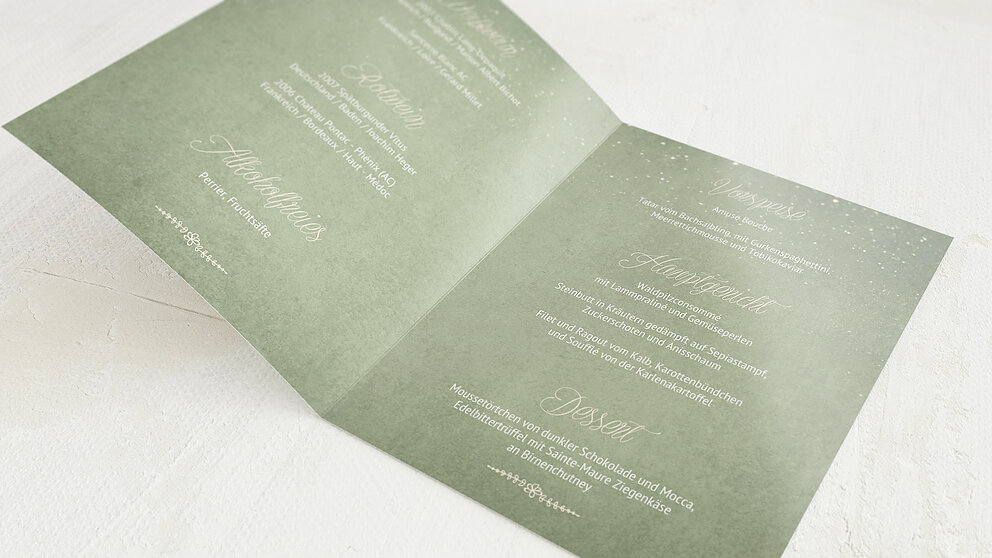 Weißwein
2007 Chablis, Long-Depaquit
Frankreich / Burgund / Maison Albert Bichot
Sancerre Blanc AC
Frankreich / Loire / Gerard Millet
Rotwein
2007 Spätburgunder Vitus
Deutschland / Baden / Joachim Heger
2006 Chateau Pontac - Phénix (AC)
Frankreich / Bordeaux / Haut - Medoc
Alkoholfreies
Perrier, Fruchtsäfte
Vorspeise
Amuse Bouche
Tatar vom Bachsaibling, mit Gurkenspaghettini,
Meerrettichmousse und Tobikokaviar
Hauptgericht
Waldpilzconsommé
mit Lammpraliné und Gemüseperlen
Steinbutt in Kräutern gedämpft auf Sepiastampf,
Zuckerschoten und Anisschaum
Filet und Ragout vom Kalb, Karottenbündchen
und Soufflé von der Karlenakartoffel
Dessert
Moussetörtchen von dunkler Schokolade und Mocca,
Edelbittertrüffel mit Sainte-Maure Ziegenkäse
an Birnenchutney